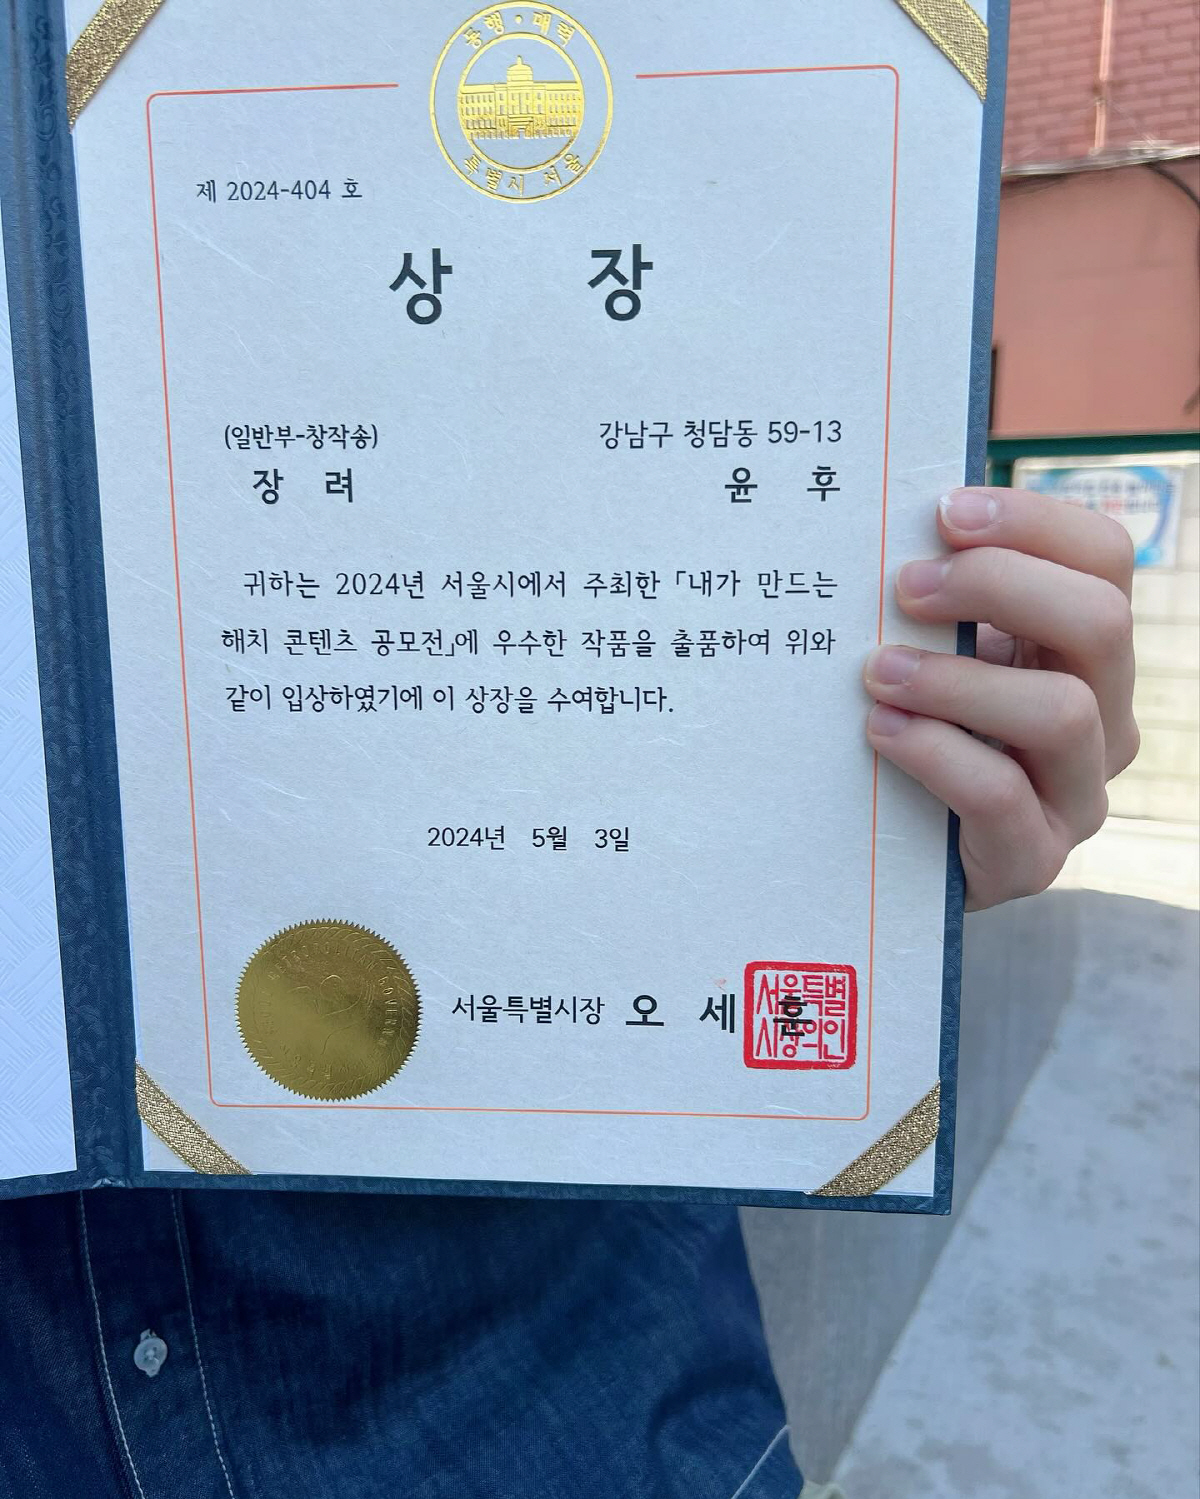 동행·매력
특별시 서울
제 2024-404 호
상 장
(일반부-창작송)
장 려
강남구 청담동 59-13
윤 후
귀하는 2024년 서울시에서 주최한 「내가 만드는
해치 콘텐츠 공모전」에 우수한 작품을 출품하여 위와
같이 입상하였기에 이 상장을 수여합니다.
2024년 5월 3일
서울특별시장 오 세 훈
서울특별
시장의인